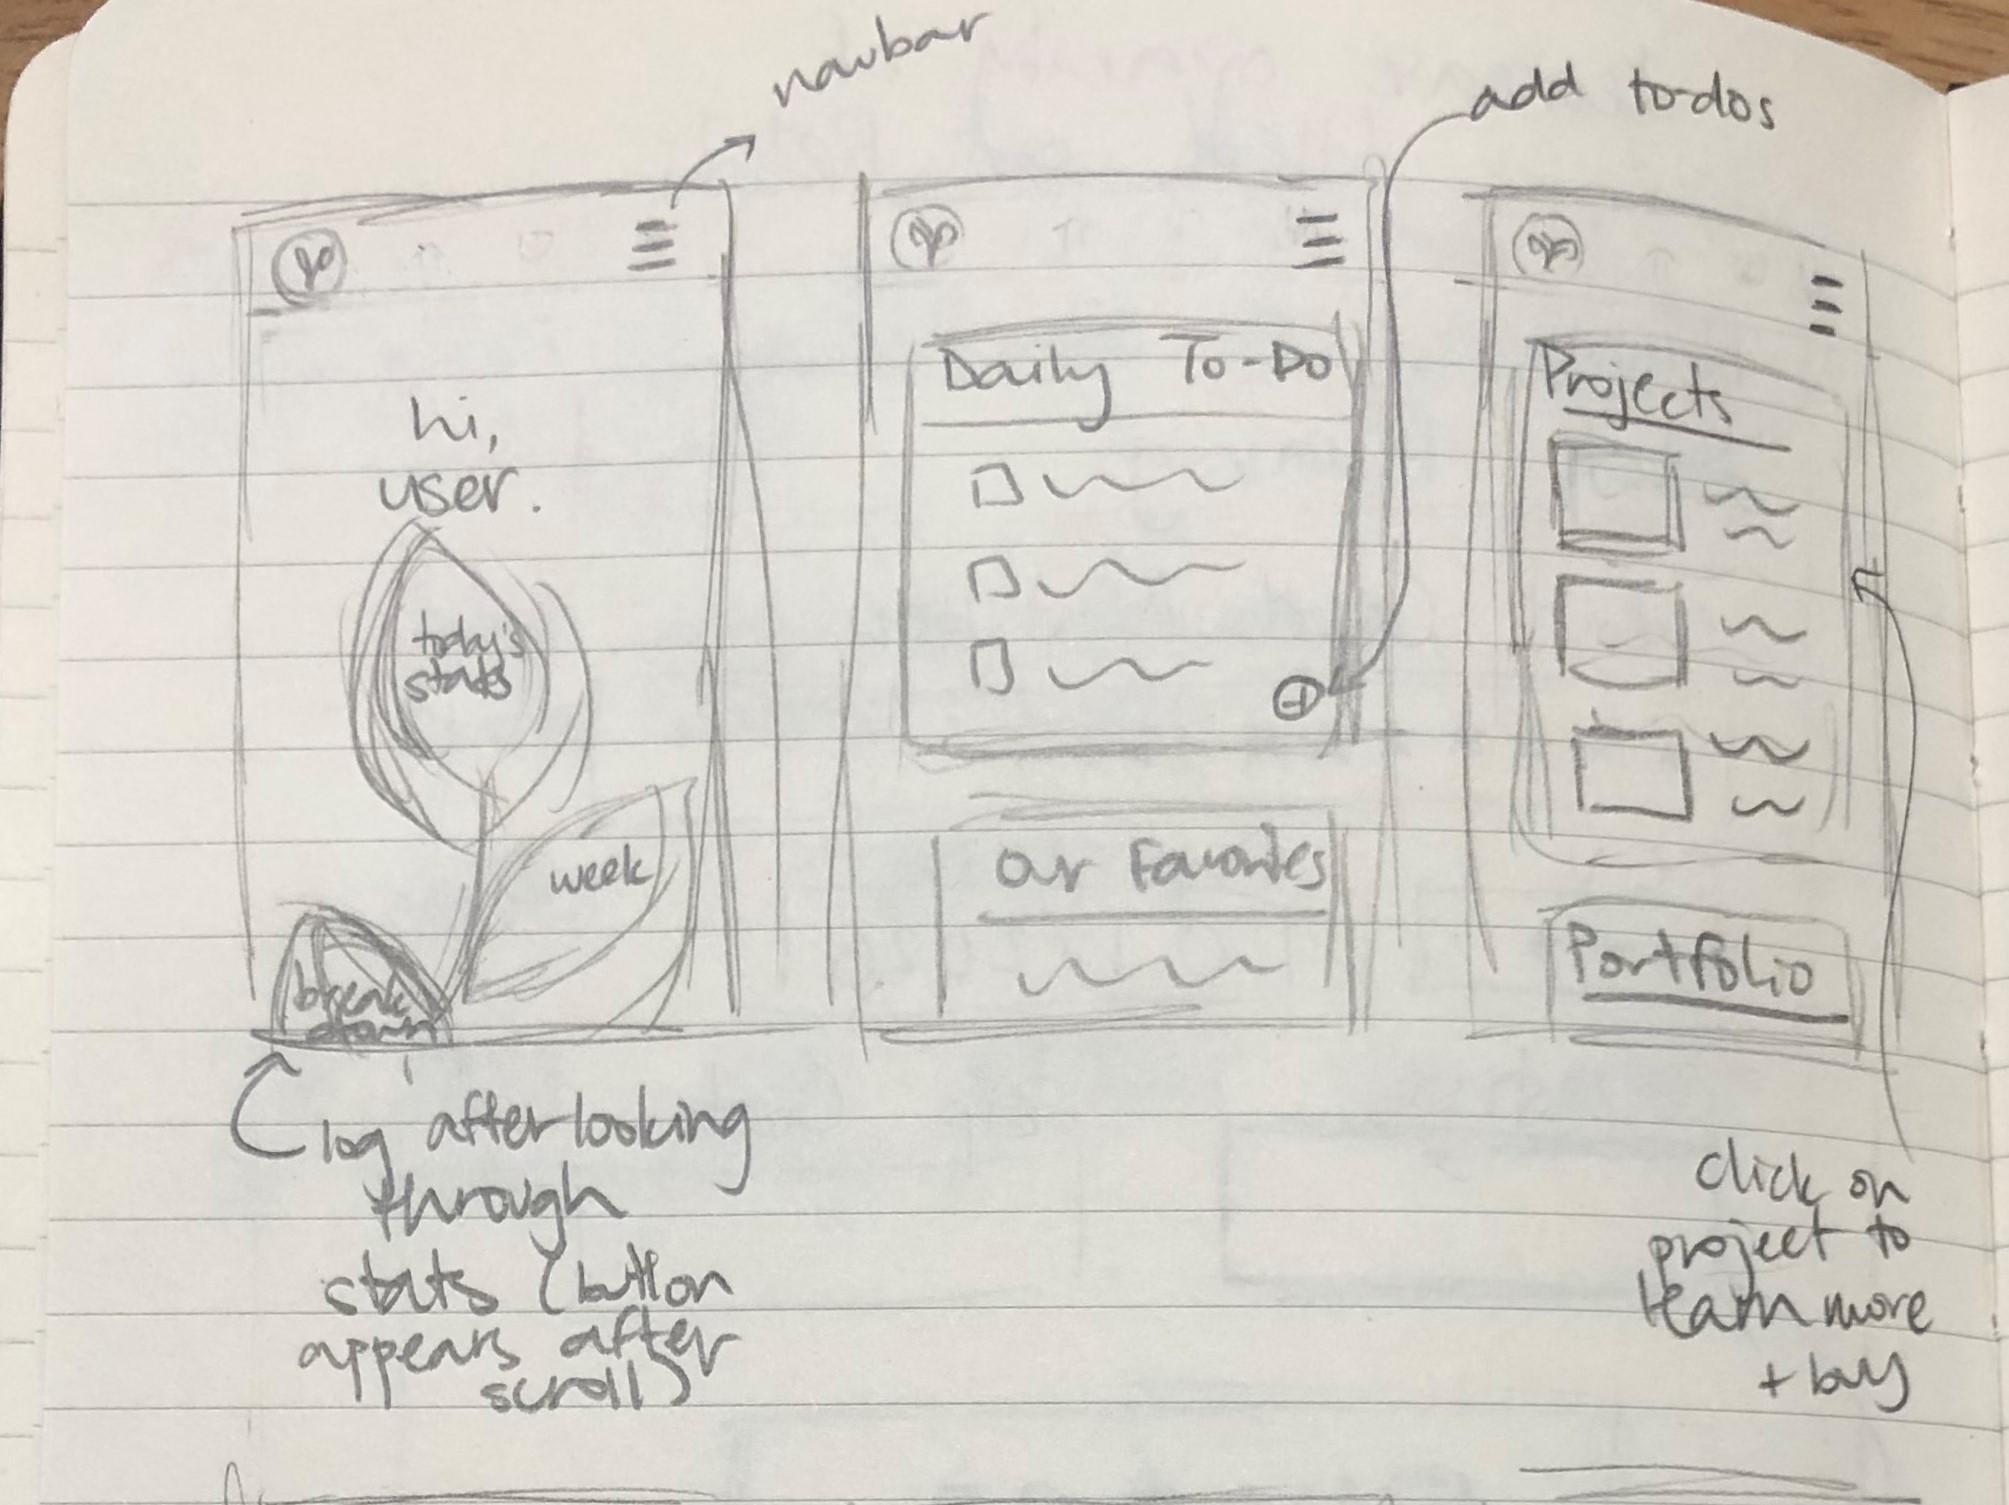 navbar
add to-dos
hi,
user.
today's
stats
week
break
down
log after looking
through
stats (button
appears after
scroll)
Daily To-Do
Our Favorites
Projects
Portfolio
click on
project to
learn more
+ buy